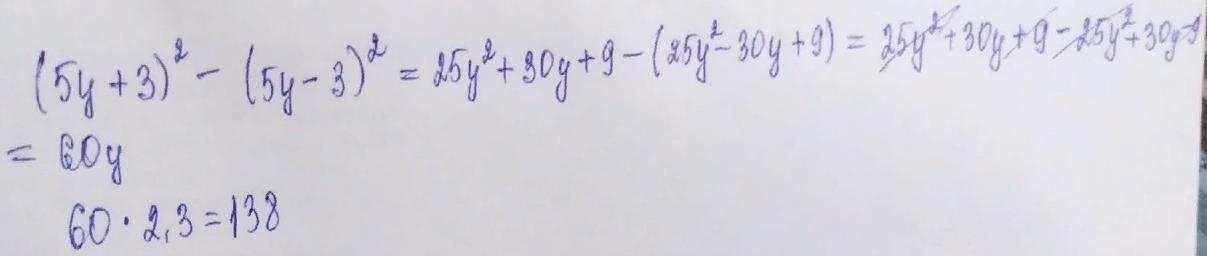 (5y+3)² - (5y-3)² = 25y²+30y+9-(25y²-30y+9) = 25y²+30y+9-25y²+30y-9
= 60y
60·2,3=138